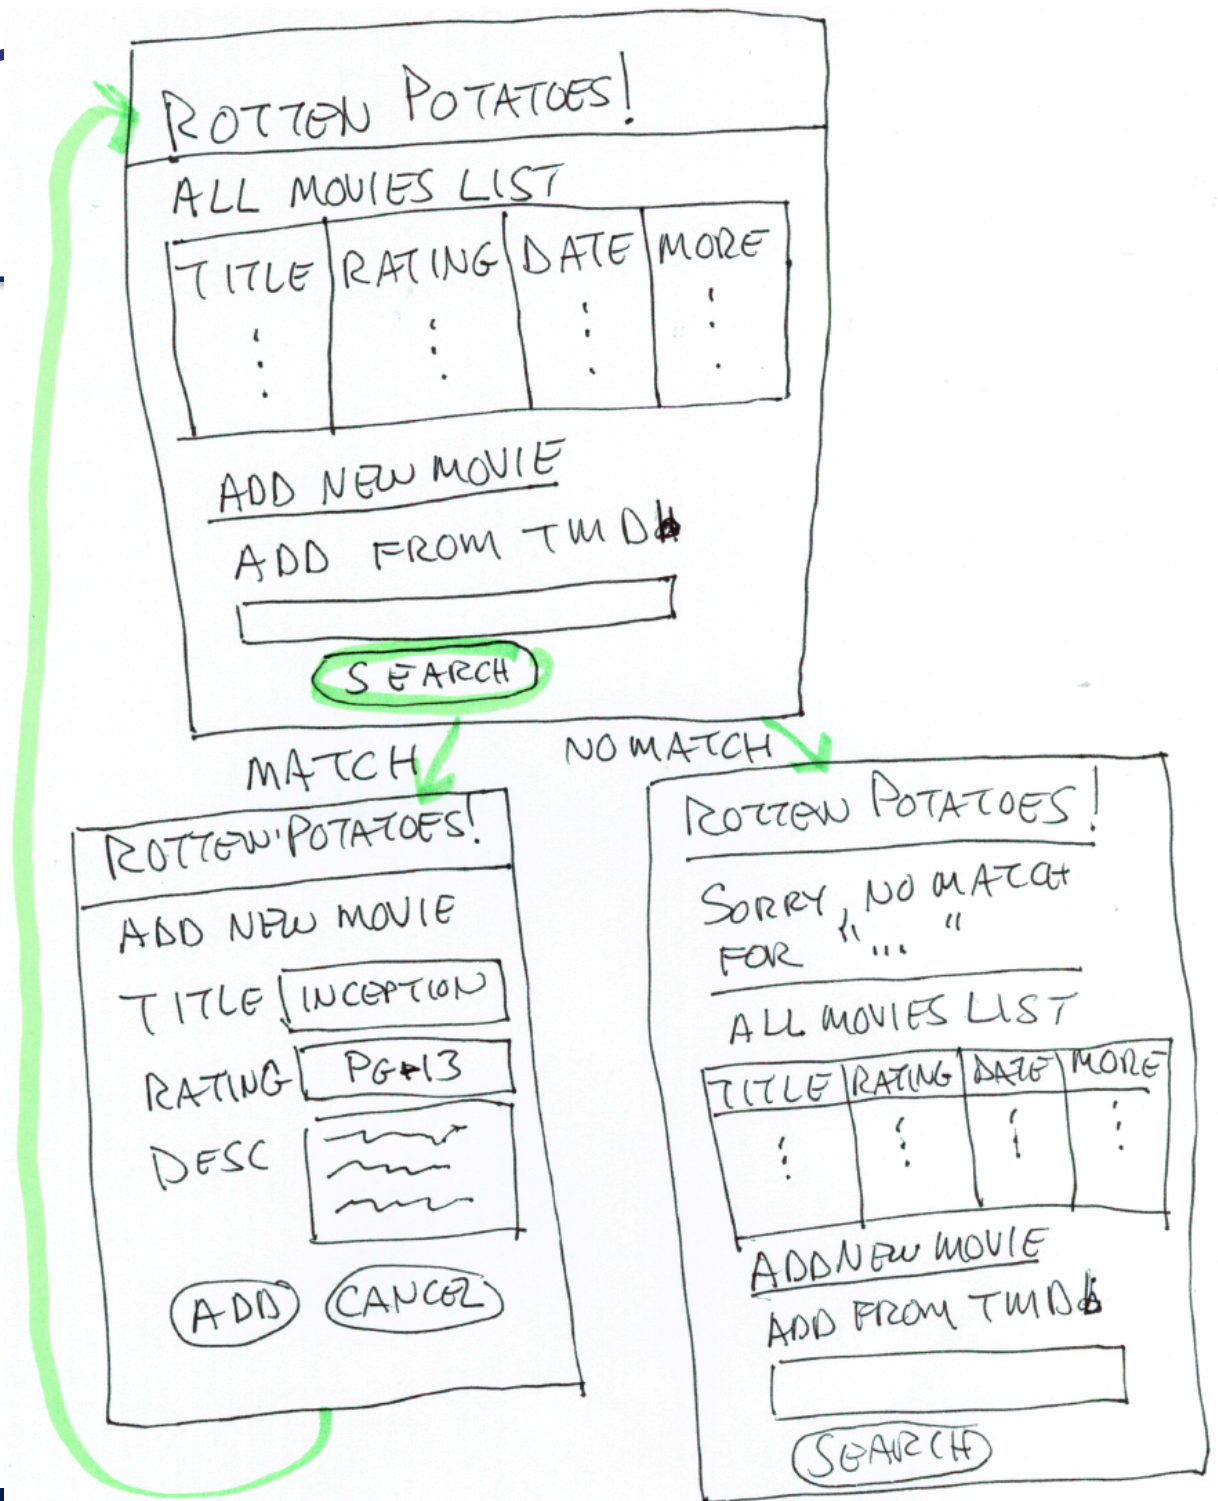 ROTTEN POTATOES!
ALL MOVIES LIST
TITLE RATING DATE MORE
ADD NEW MOVIE
ADD FROM TMDb
SEARCH
MATCH
NO MATCH
ROTTEN POTATOES!
ADD NEW MOVIE
TITLE INCEPTION
RATING PG-13
DESC
ADD CANCEL
ROTTEN POTATOES!
SORRY, NO MATCH
FOR "... "
ALL MOVIES LIST
TITLE RATING DATE MORE
ADD NEW MOVIE
ADD FROM TMDb
SEARCH